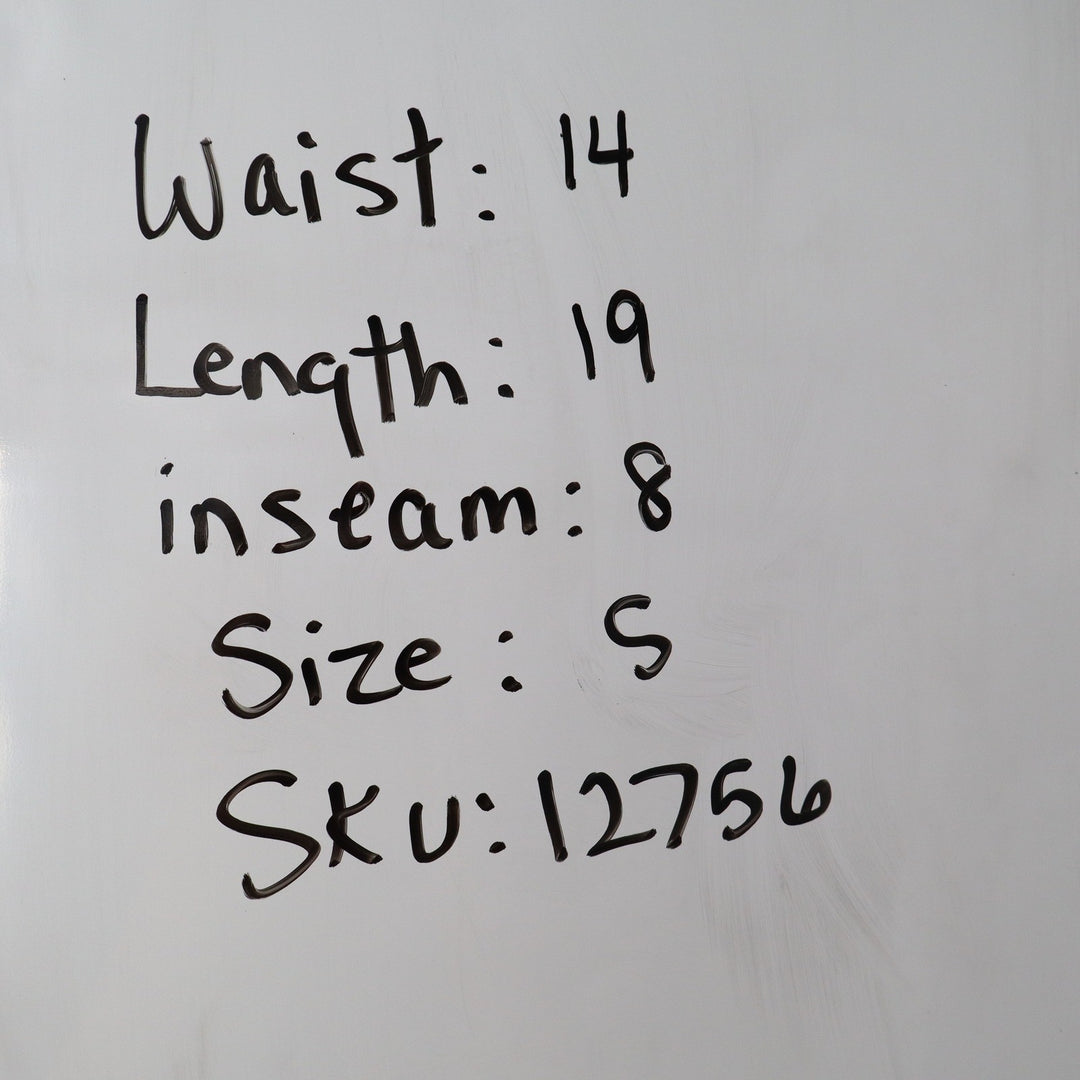 Waist: 14
Length: 19
inseam: 8
Size: S
SKU: 12756